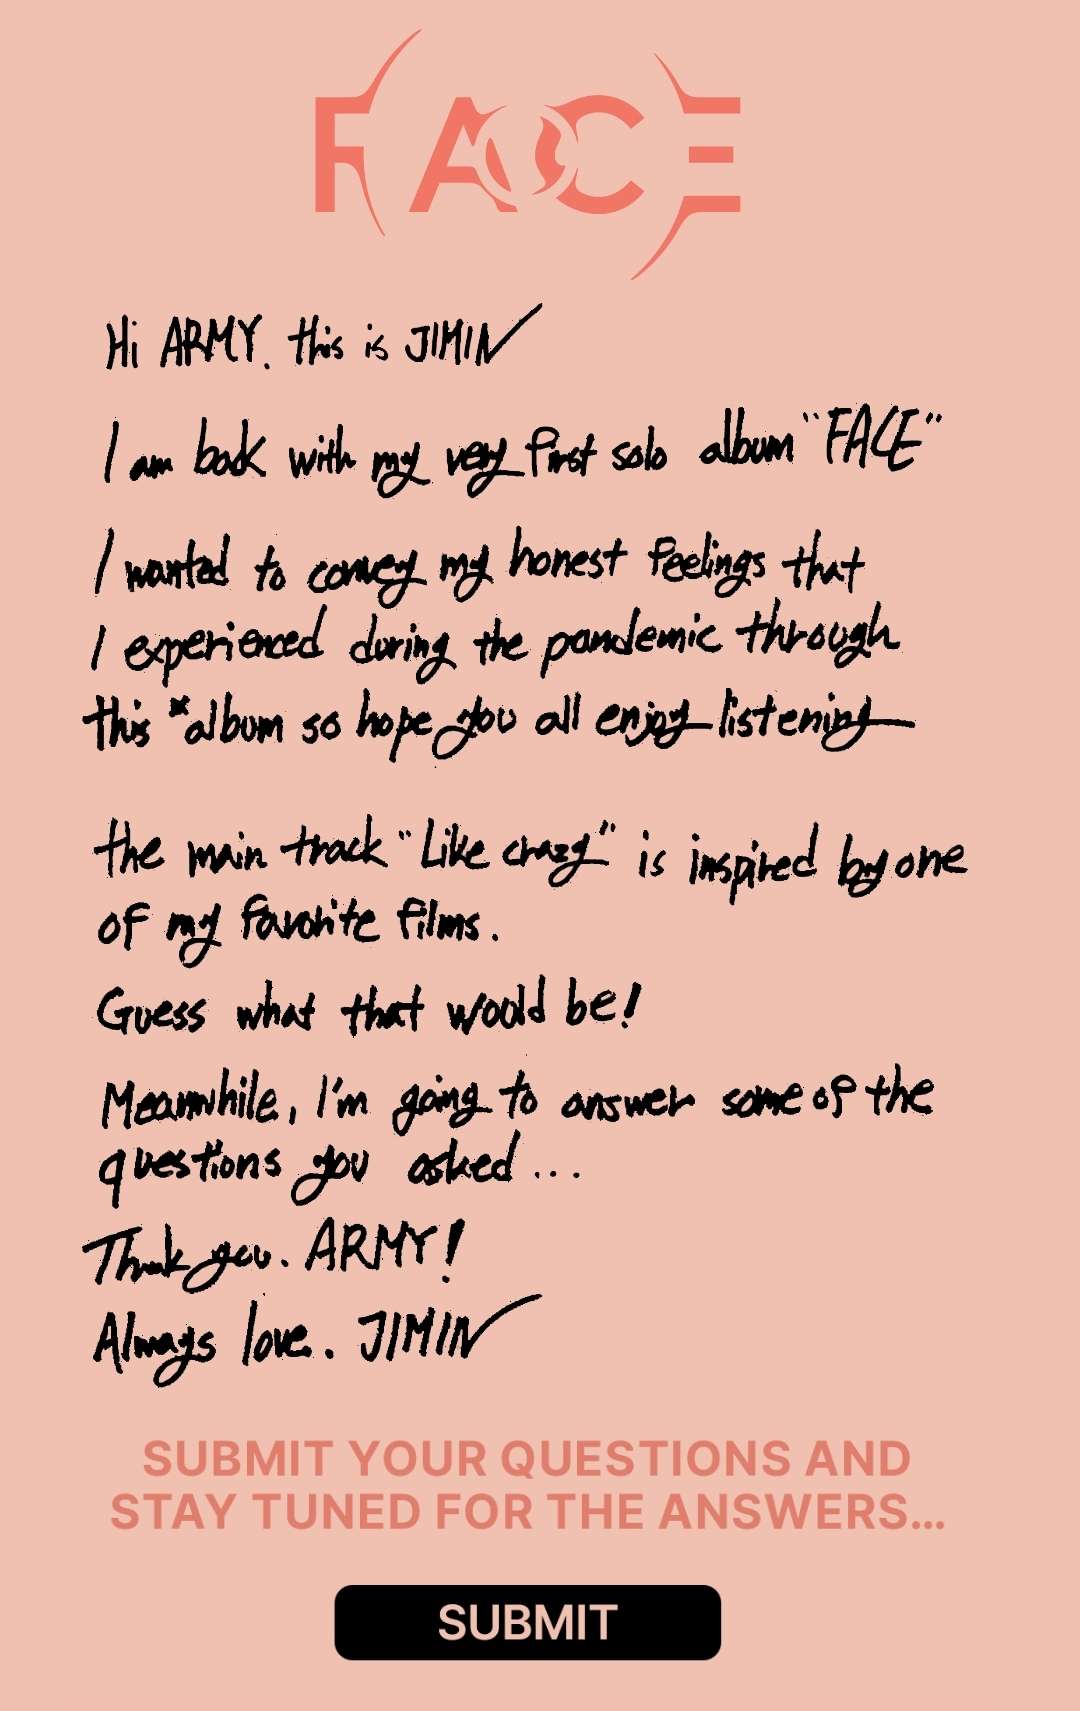 FACE
Hi ARMY. this is JIMIN
I am back with my very first solo album "FACE"
I wanted to convey my honest feelings that
I experienced during the pandemic through
this *album so hope you all enjoy listening
the main track "Like crazy" is inspired by one
of my favorite films.
Guess what that would be!
Meanwhile, I'm going to answer some of the
questions you asked...
Thank you. ARMY!
Always love. JIMIN
SUBMIT YOUR QUESTIONS AND
STAY TUNED FOR THE ANSWERS...
SUBMIT